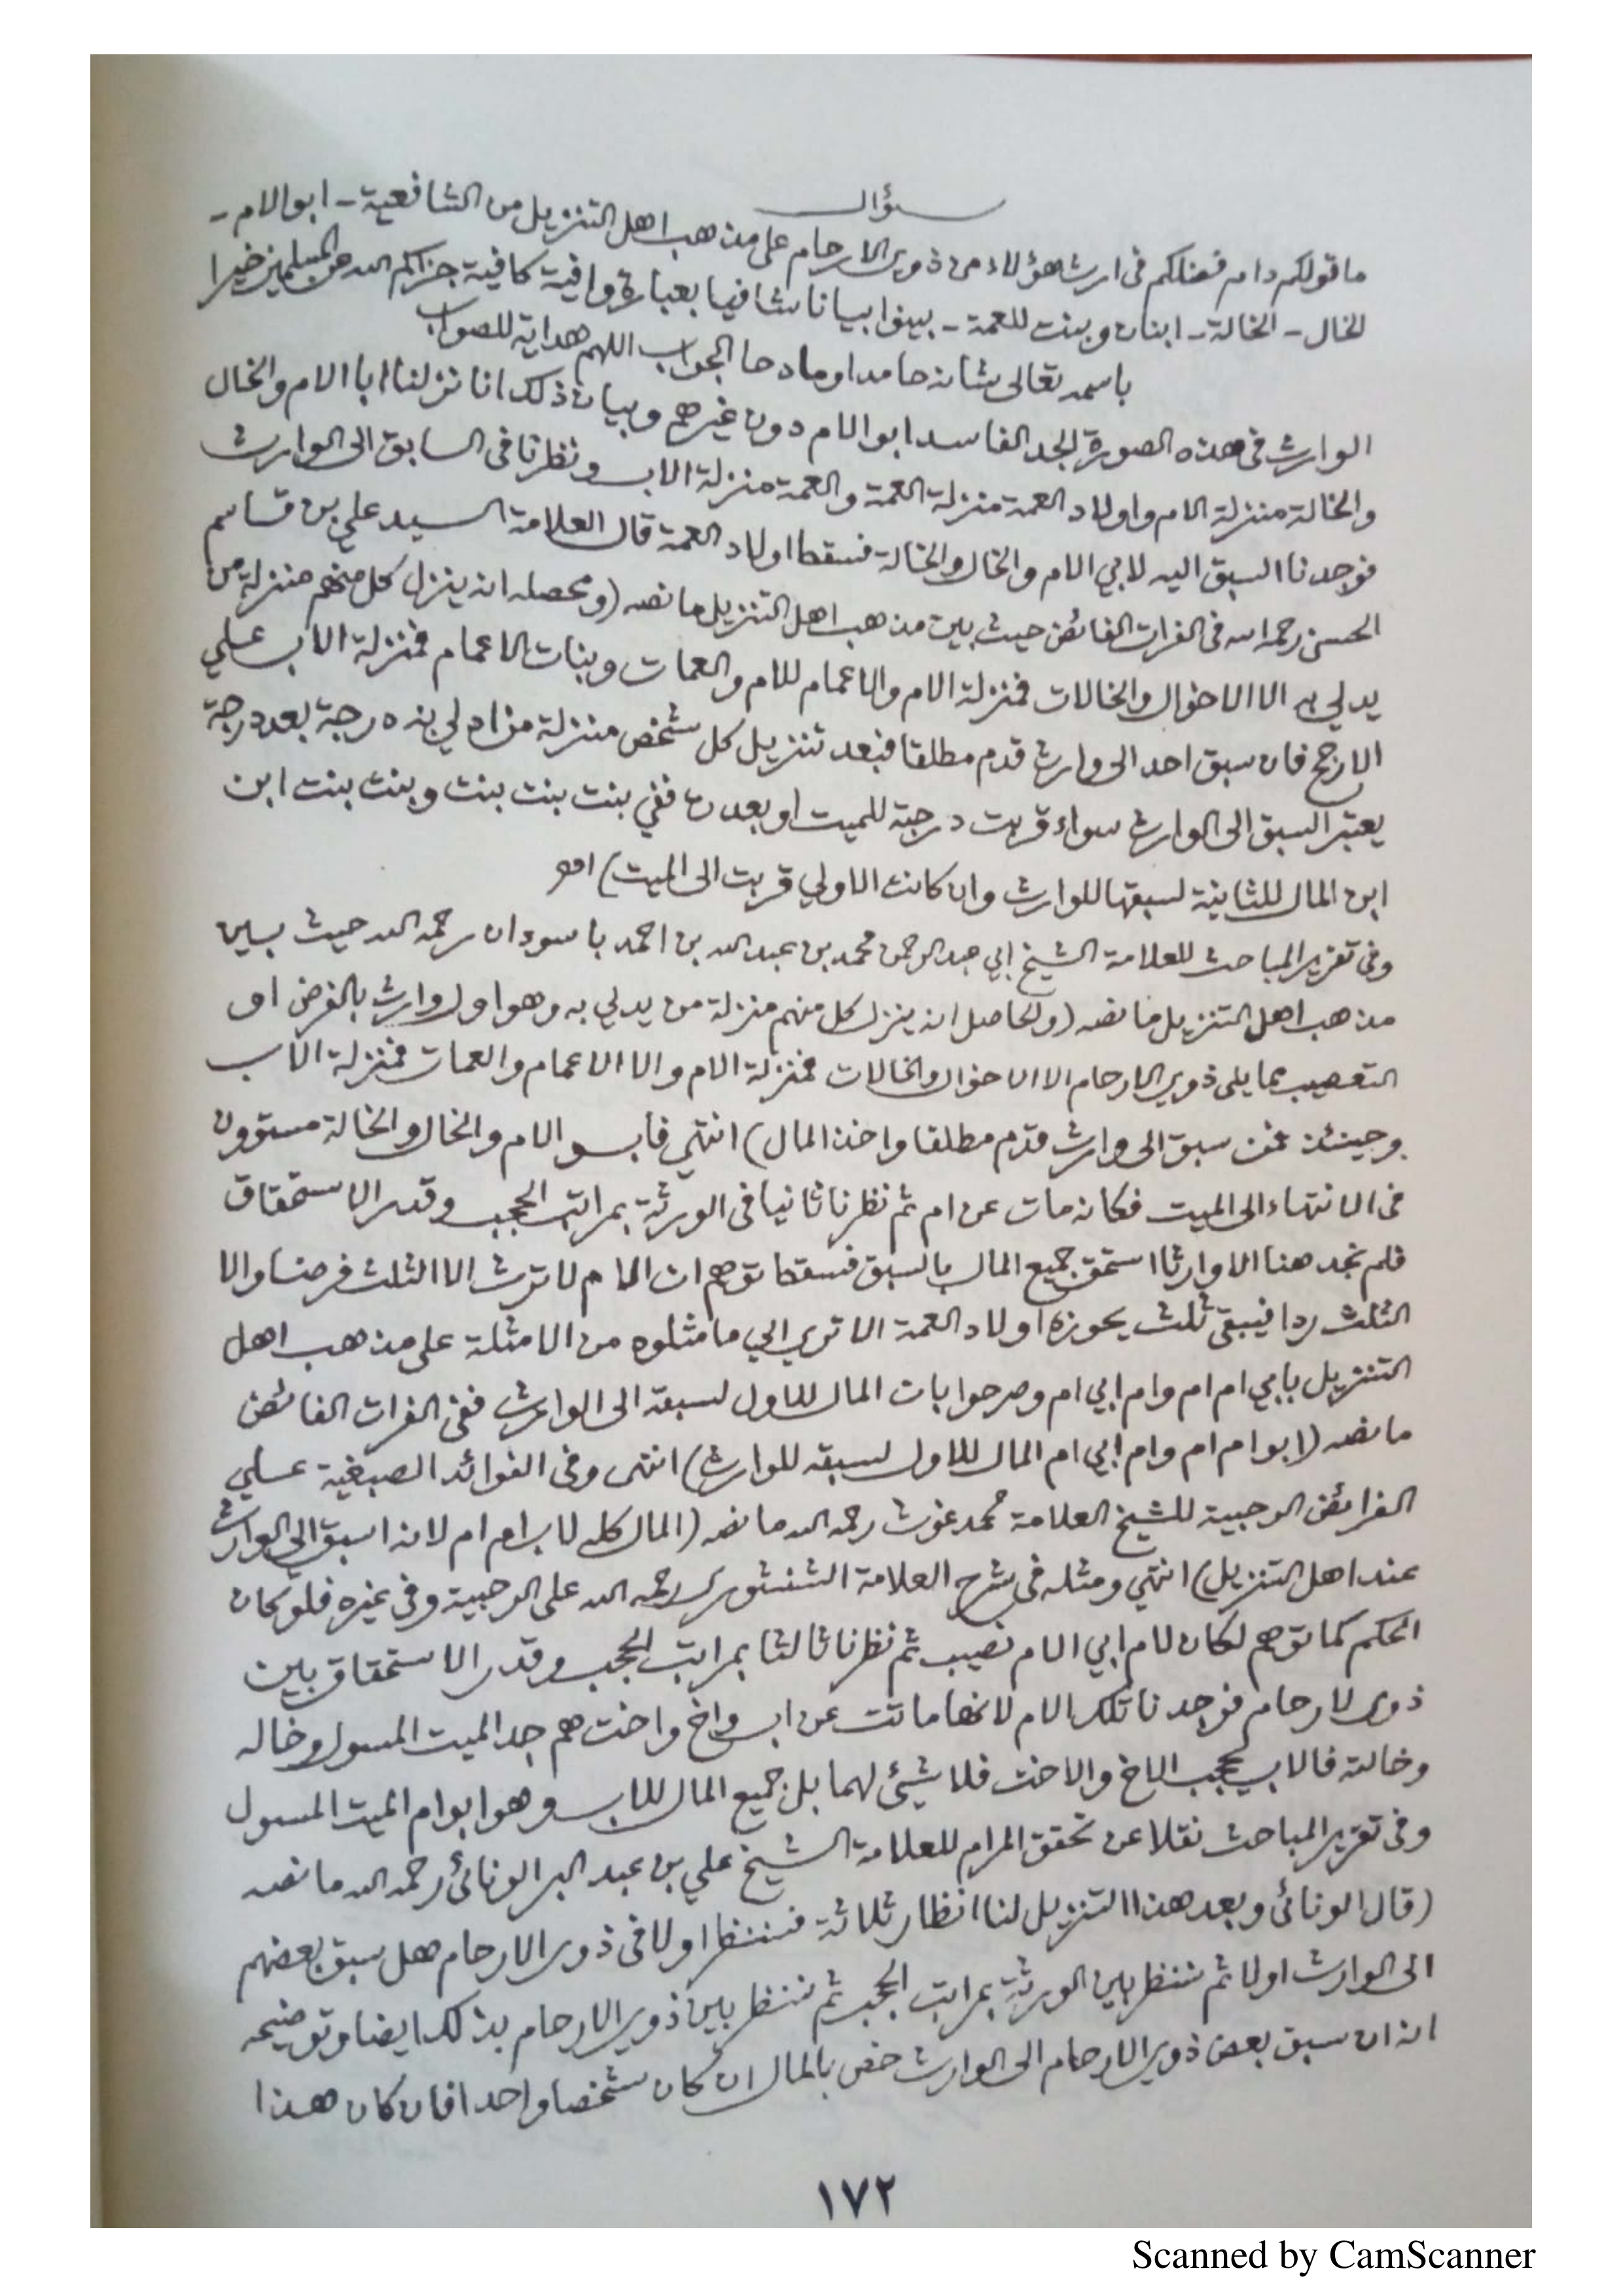 سؤال
ما قولكم دام فضلكم فى ارث هؤلاء من ذوى الارحام على مذهب اهل التنزيل من الشافعية - ابو الام -
الخال - الخالة - ابنان وبنت للعمة - بينوا بيانا شافيا بعبارة وافية كافية جزاكم الله عن المسلمين خيرا
باسمه تعالى شانه حامدا وماد حا الجواب اللهم هداية للصواب
الوارث فى هذه الصورة الجد الفاسد ابو الام دون غيرهم وبيان ذلك انا نزلنا ابا الام والخال
والخالة منزلة الام واولاد العمة منزلة العمة والعمة منزلة الاب ونظرنا فى السابق الى الوارث
فوجدنا السبق اليه لابي الام والخال والخالة فسقط اولاد العمة قال العلامة السيد علي بن قاسم
الحسن رحمه الله فى الفرات الفائض حيث بين مذهب اهل التنزيل ما نصه (ومحصله انه ينزل كل منهم منزلة من
يدلي به الا الاخوال والخالات فمنزلة الام والاعمام للام والعمات وبنات الاعمام فمنزلة الاب على
الارجح فان سبق احد الى وارث قدم مطلقا فبعد تنزيل كل شخص منزلة من ادلي بنه درجة بعد درجة
يعتبر السبق الى الوارث سواء قربت درجة للميت او بعدت ففي بنت بنت بنت وبنت بنت ابن
ابن المال للثانية لسبقها للوارث وان كانت الاولي قربت الى الميت) اهـ
وفى تقرير المباحث للعلامة الشيخ ابي عبد الرحمن محمد بن عبد الله بن احمد باسودان رحمه الله حيث بين
مذهب اهل التنزيل ما نصه (والحاصل انه ينزل كل منهم منزلة من يدلي به وهو اول وارث بالفرض او
التعصيب مما يلى ذوى الارحام الا الاخوال والخالات فمنزلة الام والا الاعمام والعمات فمنزلة الاب
وحينئذ فمن سبق الى وارث قدم مطلقا واخذ المال) انتهى فابو الام والخال والخالة مستوون
فى الانتهاء الى الميت فكانه مات عن ام ثم نظرنا ثانيا فى الورثة بمراتب الحجب وقدر الاستحقاق
فلم نجد هنا الا وارثا استحق جميع المال بالسبق فسقط توهم ان الام لا ترث الا الثلث فرضا والا
الثلث ردا فيبقى ثلث يحوزه اولاد العمة الا تري الي ما مثلوه من الامثلة على مذهب اهل
التنزيل بابي ام ام وام ابي ام وصرحوا بات المال للاول لسبقه الى الوارث ففى الفرات الفائض
ما نصه (ابو ام ام وام ابي ام المال للاول لسبقه للوارث) انتهى وفى الفوائد الصبغية على
الفرائض الرحبية للشيخ العلامة محمد غوث رحمه الله ما نصه (المال كله لاب ام ام لانه اسبق الى الوارث
عند اهل التنزيل) انتهي ومثله فى شرح العلامة الشنشورى رحمه الله على الرحبية وفى غيره فلو كان
الحكم كما توهم لكان لام ابي الام نصيب ثم نظرنا ثالثا بمراتب الحجب وقدر الاستحقاق بين
ذوى لارحام فوجدنا تلك الام لانها ماتت عن اب واخ واخت هم جد الميت المسول وخاله
وخالته فالاب يحجب الاخ والاخت فلا شيئ لهما بل جميع المال للاب وهو ابو ام الميت المسول
وفى تقرير المباحث نقلا عن تحقق المرام للعلامة الشيخ علي بن عبد البر الونائى رحمه الله ما نصه
(قال الونائى وبعد هذا التنزيل لنا انظار ثلاثة فسننظر اولا فى ذوى الارحام هل سبق بعضهم
الى الوارث اولا ثم ننظر بين الورثة بمراتب الحجب ثم ننظر بين ذوى الارحام بذلك ايضا وتوضيحه
انه ان سبق بعض ذوى الارحام الى الوارث خص بالمال ان كان شخصا واحدا فان كان هذا
١٧٢
Scanned by CamScanner